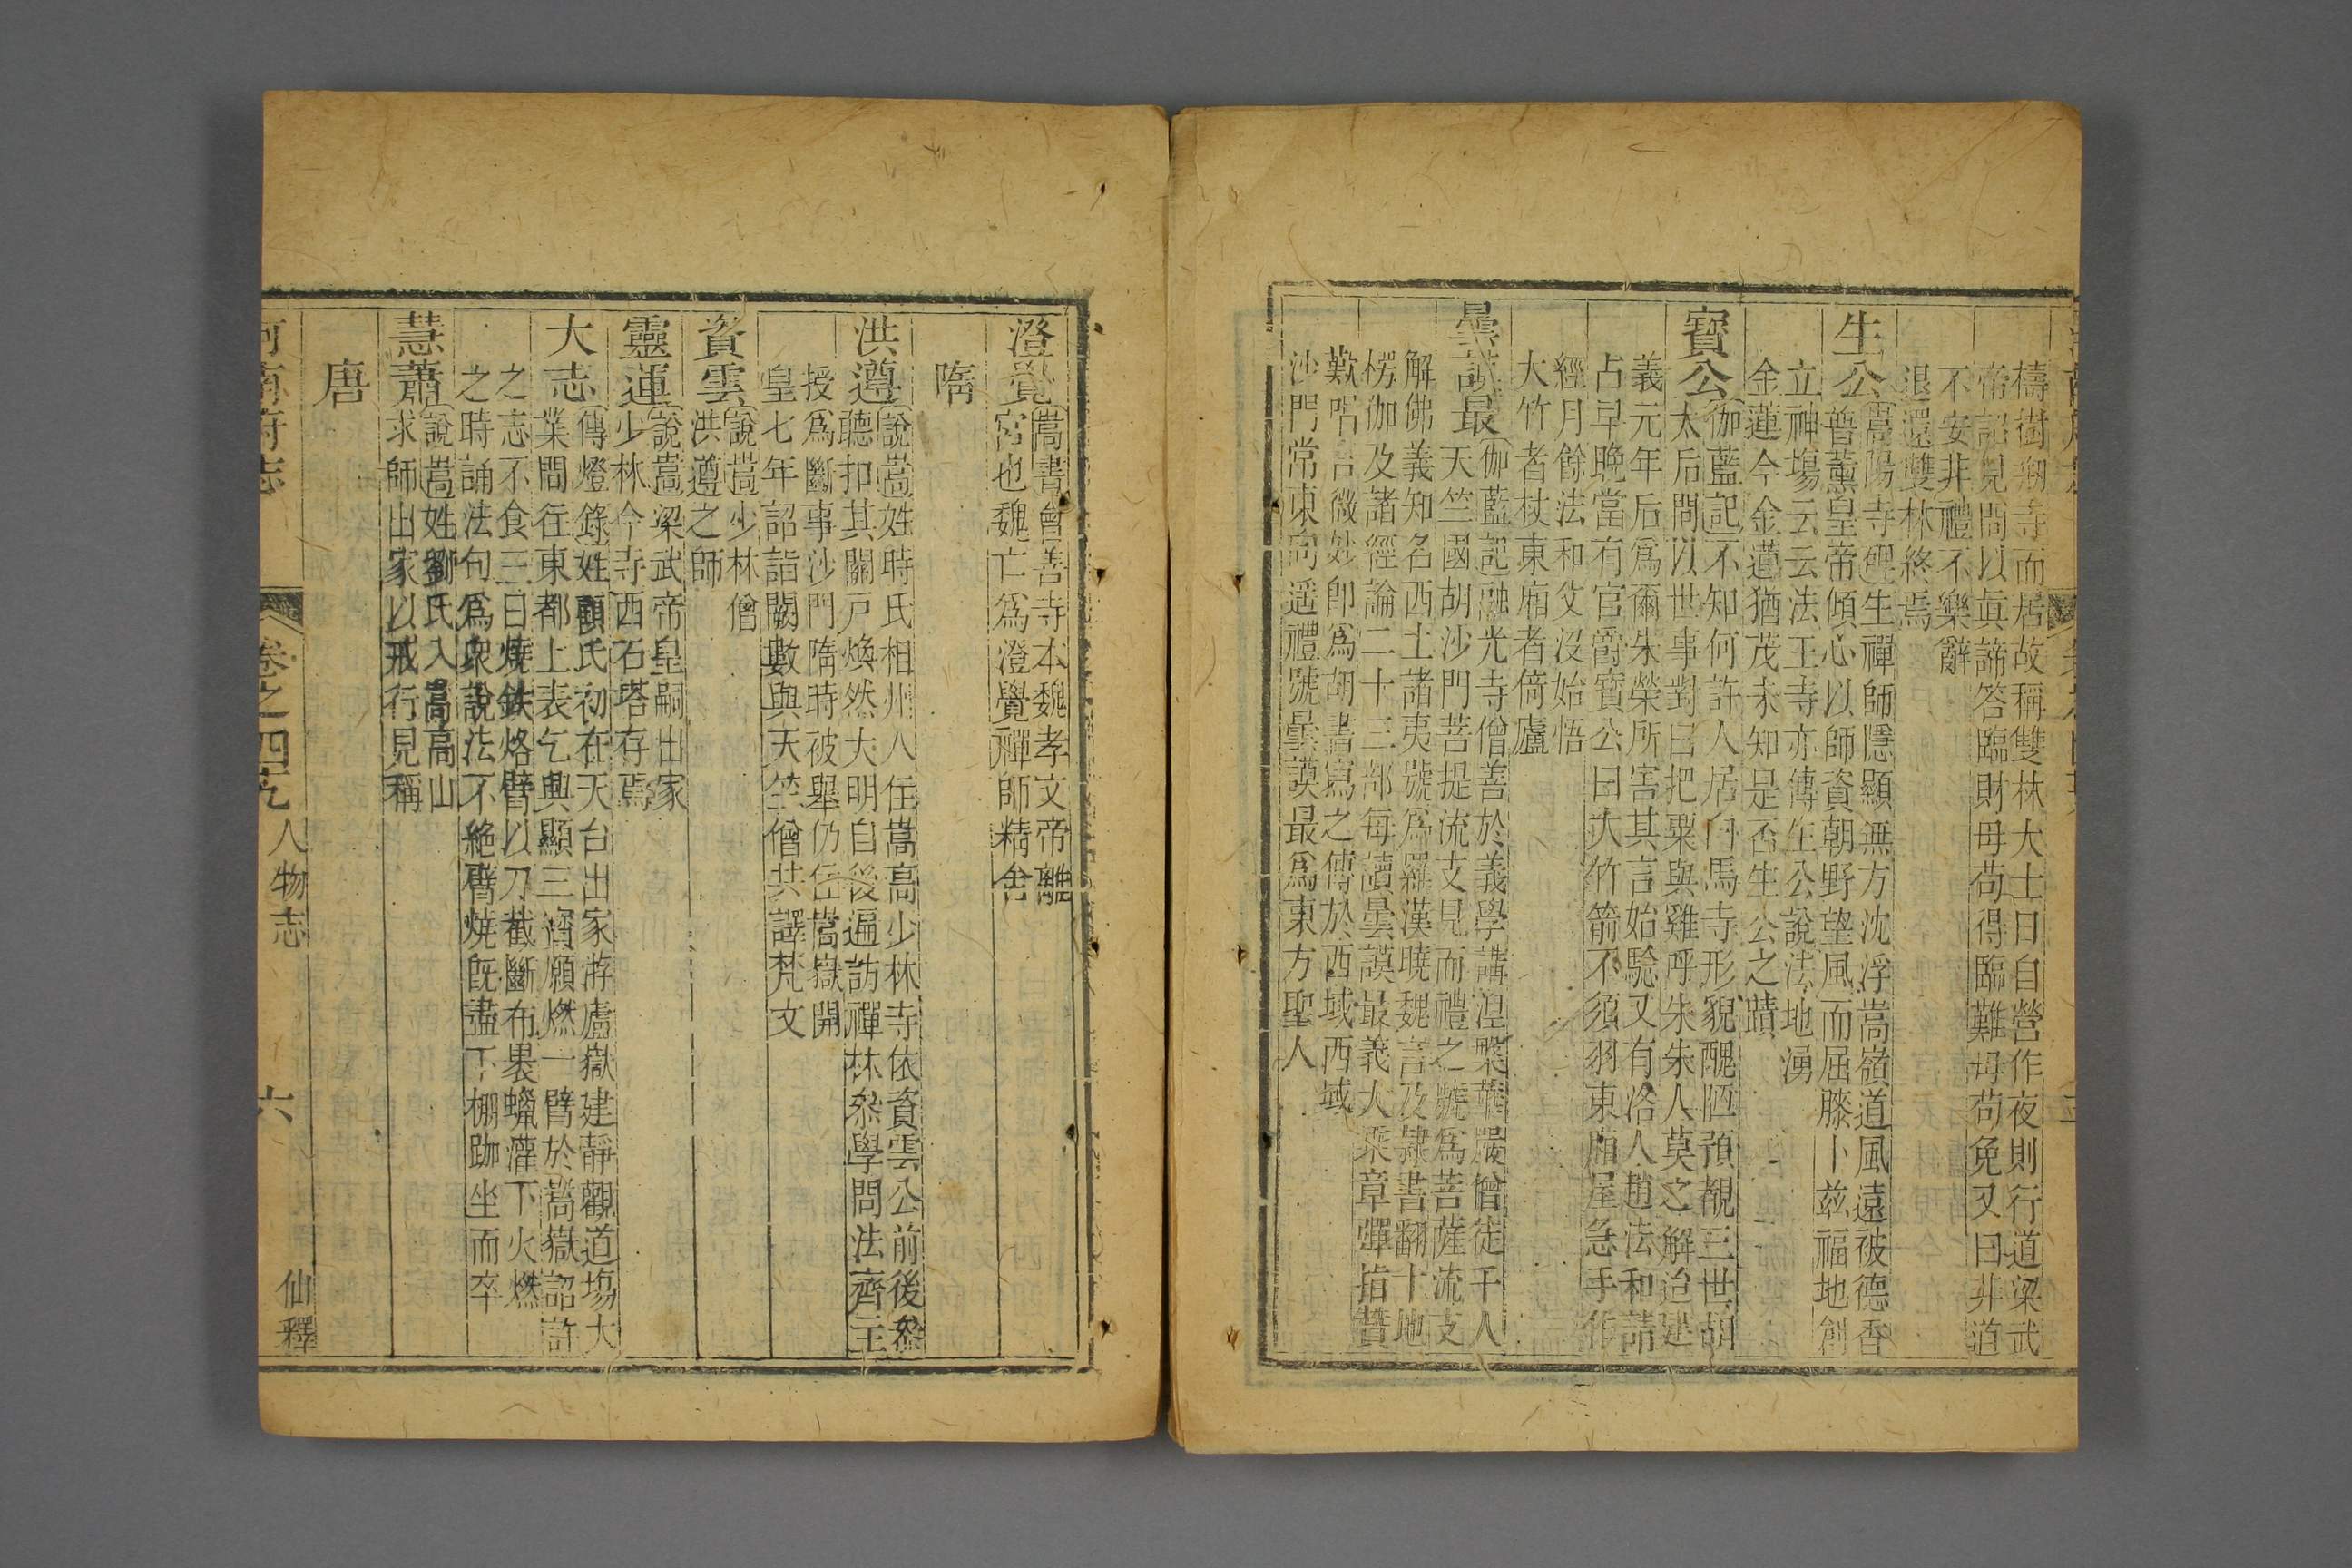 檮樹剏寺而居故稱雙林大士日自營作夜則行道梁武
帝詔見問以眞諦答臨財毋苟得臨難毋苟免又曰非道
不安非禮不樂辭
退還雙林終焉
生公
嵩陽寺碑生禪師隱顯無方沈浮嵩嶺道風遠被德香
普薰皇帝傾心以師資朝野望風而屈膝卜兹福地創
立神塲云云法王寺亦傳生公說法地湧
金蓮今金蓮猶茂未知是否生公之蹟
寶公
伽藍記不知何許人居白馬寺形貌醜陋預覩三世胡
太后問以世事對曰把粟與雞呼朱朱人莫之解迨建
義元年后爲爾朱榮所害其言始驗又有洛人趙法和請
占早晚當有官爵寶公曰大竹箭不須羽東廂屋急手作
經月餘法和父沒始悟
大竹者杖東廂者倚廬
曇謨最
伽藍記融光寺僧善於義學講湼槃華嚴僧徒千人
天竺國胡沙門菩提流支見而禮之號爲菩薩流支
解佛義知名西土諸夷號爲羅漢曉魏言及隷書翻十地
楞伽及諸經論二十三部每讀曇謨最義大乘章彈指贊
歎唱言微妙卽爲胡書寫之傳於西域西域
沙門常東向遥禮號曇謨最爲東方聖人
澄覺
嵩書會善寺本魏孝文帝離
宮也魏亡爲澄覺禪師精舍
隋
洪遵
說嵩姓時氏相州人住嵩高少林寺依資雲公前後叅
聽扣其關戸煥然大明自後遍訪禪林叅學問法齊主
授爲斷事沙門隋時被舉仍住嵩嶽開
皇七年詔詣闕數與天竺僧共譯梵文
資雲
說嵩少林僧
洪遵之師
靈運
說嵩梁武帝皇嗣出家
少林今寺西石塔存焉
大志
傳燈錄姓顧氏初在天台出家游廬嶽建靜觀道塲大
業間徃東都上表乞興顯三寶願燃一臂於嵩嶽詔許
之志不食三日燒鉄烙臂以刀截斷布裹蠟灌下火燃
之時誦法句爲衆說法不絶臂燒旣盡下棚跏坐而卒
慧蕭
說嵩姓劉氏入嵩高山
求師出家以戒行見稱
唐
河南府志
卷之四五
人物志
六
仙釋